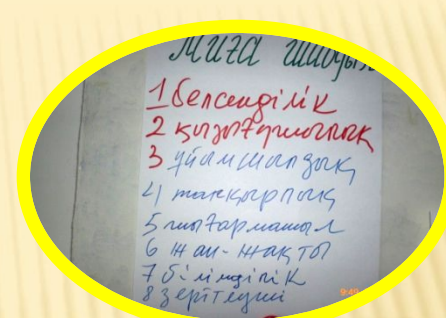 Миға шабуыл
1 белсенділік
2 қызығушылық
3 ұйымшылдық
4 тапқырлық
5 шығармашыл
6 жан-жақты
7 білімділік
8 зерттеуші
9:49